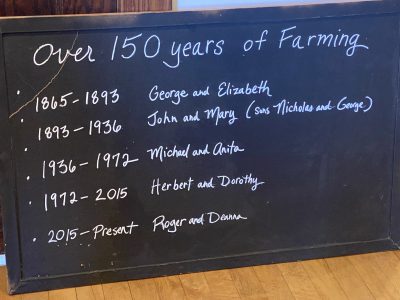 Over 150 years of Farming
• 1865-1893 George and Elizabeth
• 1893-1936 John and Mary (sons Nicholas and George)
• 1936-1972 Michael and Anita
• 1972-2015 Herbert and Dorothy
• 2015-Present Roger and Deanna